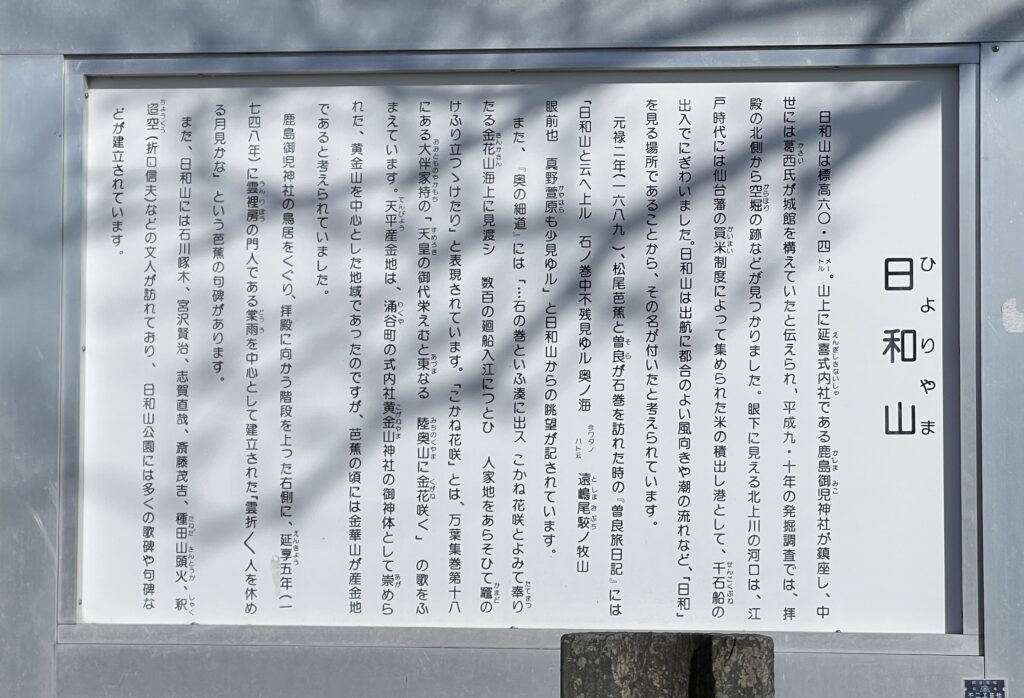 日和山
ひよりやま
日和山は標高六〇・四メートル。山上に延喜式内社である鹿島御児神社が鎮座し、中
世には葛西氏が城館を構えていたと伝えられ、平成九・十年の発掘調査では、拝
殿の北側から空堀の跡などが見つかりました。眼下に見える北上川の河口は、江
戸時代には仙台藩の買米制度によって集められた米の積出し港として、千石船の
出入でにぎわいました。日和山は出航に都合のよい風向きや潮の流れなど、「日和」
を見る場所であることから、その名が付いたと考えられています。
元禄二年(一六八九)、松尾芭蕉と曽良が石巻を訪れた時の『曽良旅日記』には
「日和山と云へ上ル 石ノ巻中不残見ゆル奥ノ海 今ワタノハト云 遠嶋尾駮ノ牧山
眼前也 真野萱原も少見ゆル」と日和山からの眺望が記されています。
また、『奥の細道』には「…石の巻といふ湊に出ス こかね花咲とよみて奉り
たる金花山海上に見渡シ 数百の廻船入江につとひ 人家地をあらそひて竈の
けふり立つゝけたり」と表現されています。「こかね花咲」とは、万葉集巻第十八
にある大伴家持の「天皇の御代栄えむと東なる 陸奥山に金花咲く」 の歌をふ
まえています。天平産金地は、涌谷町の式内社黄金山神社の御神体として崇めら
れた、黄金山を中心とした地域であったのですが、芭蕉の頃には金華山が産金地
であると考えられていました。
鹿島御児神社の鳥居をくぐり、拝殿に向かう階段を上った右側に、延享五年(一
七四八年)に雲裡房の門人である棠雨を中心として建立された「雲折〱人を休め
る月見かな」という芭蕉の句碑があります。
また、日和山には石川啄木、宮沢賢治、志賀直哉、斎藤茂吉、種田山頭火、釈
迢空(折口信夫)などの文人が訪れており、日和山公園には多くの歌碑や句碑な
どが建立されています。